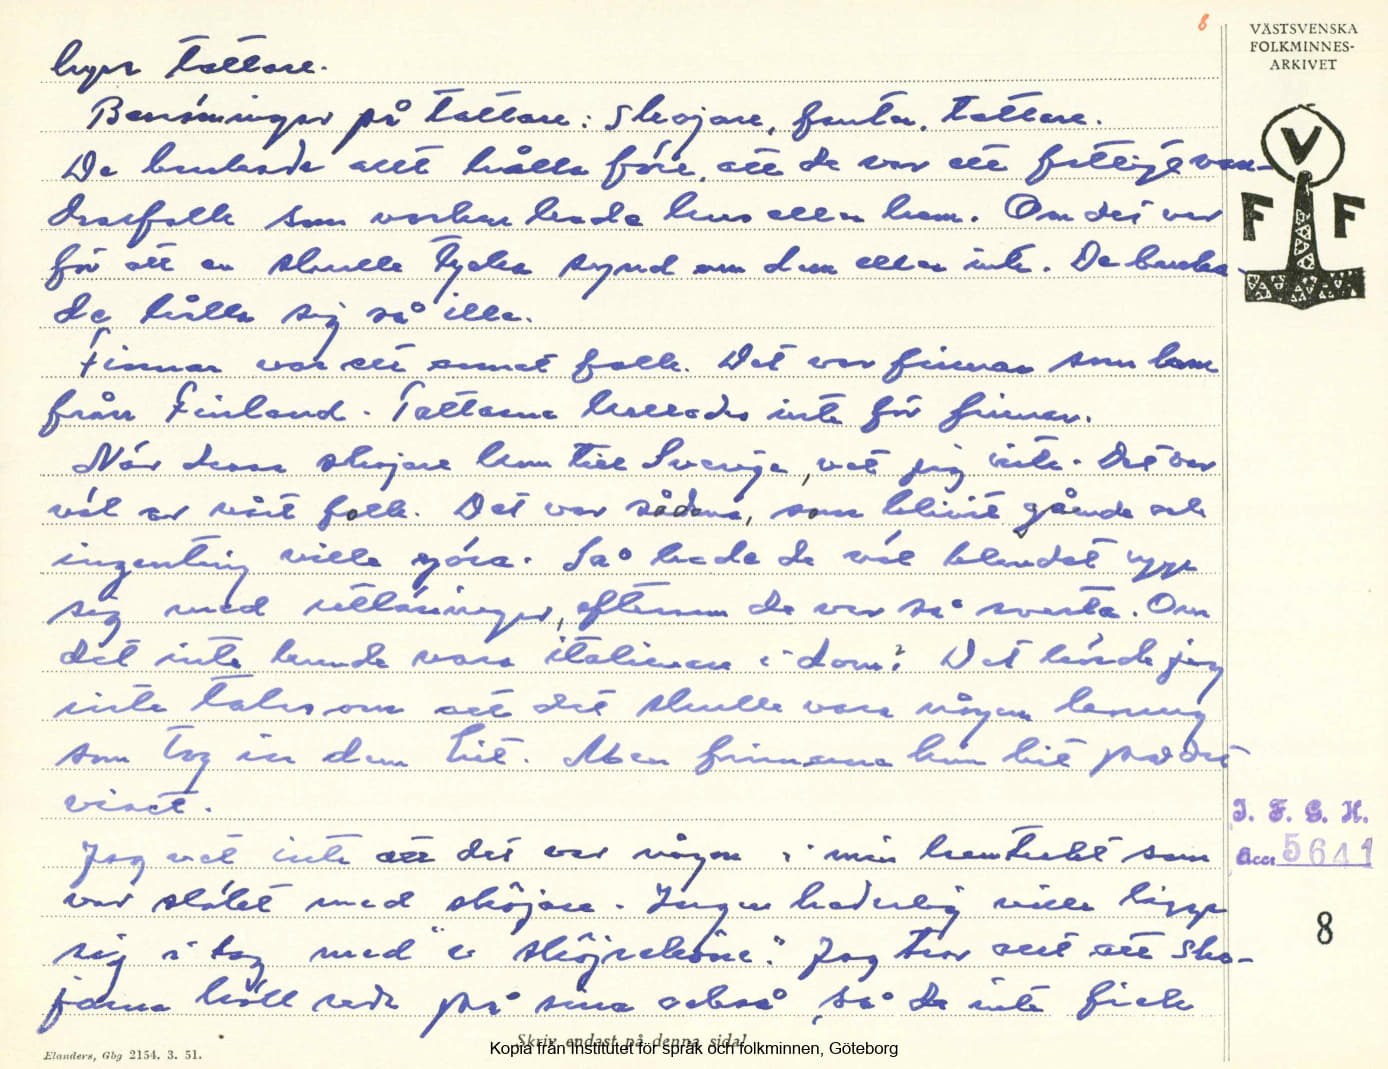 8
VÄSTSVENSKA
FOLKMINNES-
ARKIVET
V
F F
tattare.
Benämningar på tattare: skojare, fanta, tattare.
De brukade allt hålla före, att de var ett fattigt van-
drarfolk som varken hade hus eller hem. Om det var
för att en skulle tycka synd om dem eller inte. De bruka-
de hålla sig så illa.
Finnar var ett annat folk. Det var finnar som kom
från Finland. Tattarna kallades inte för finnar.
När dessa skojare kom till Sverige, vet jag inte. Det var
väl av vårt folk. Det var sådana, som blivit gående och
ingenting ville göra. Så hade de väl blandat upp
sig med utlänningar, eftersom de var så svarta. Om
det inte kunde vara italienare i dom? Det hörde jag
inte talas om att det skulle vara någon konung
som tog in dem hit. Men finnarna kom hit på det
viset.
Jag vet inte att det var någon i min hemtrakt som
var släkt med skojare. Ingen hederlig ville lägga
sig i tag med "e skojrekåne". Jag tror allt att sko-
jarna höll reda på sina också, så de inte fick
J. F. G. H.
Acc. 5641
8
Skriv endast på denna sida!
Kopia från Institutet för språk och folkminnen, Göteborg
Elanders, Gbg 2154. 3. 51.